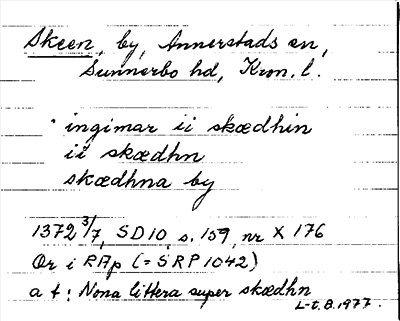 Skeen, by, Annerstads sn,
Sunnerbo hd, Kron. l.
ingimar ii skædhin
ii skædhn
skædhna by
1372 3/7, SD 10, s. 159, nr X 176
Or i RAp (= SRP 1042)
a t: Nona littera super skædhn
L-t. B. 1977.